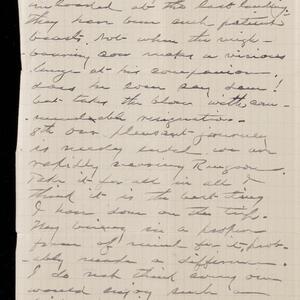 at the last landing
They have been such patient
beasts. not when the neigh-
boring cow makes a vicious
lunge at his companion.
does he even say damn!
but takes the blow with com-
mendable resignation.
8th our pleasant journey
is nearly ended we are
rapidly nearing
Take it for all in all I
think it is the best thing
I have done on the trip.
They being in a proper
frame of mind for it, prob-
ably made a difference.
I do not think every one
would enjoy such a